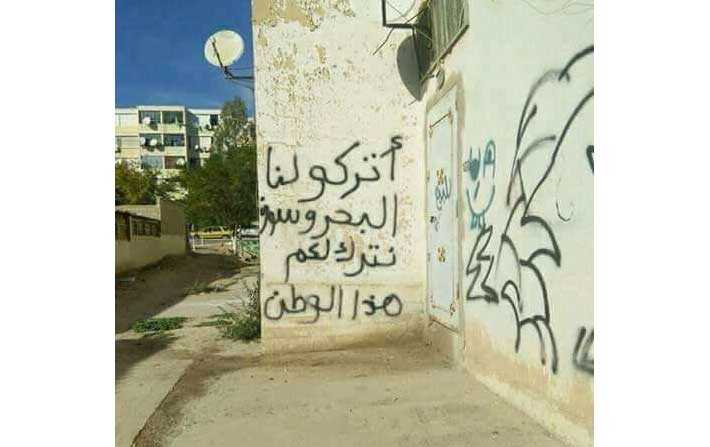 أتركو لنا
البحر وسوف
نترك لكم
هذا الوطن